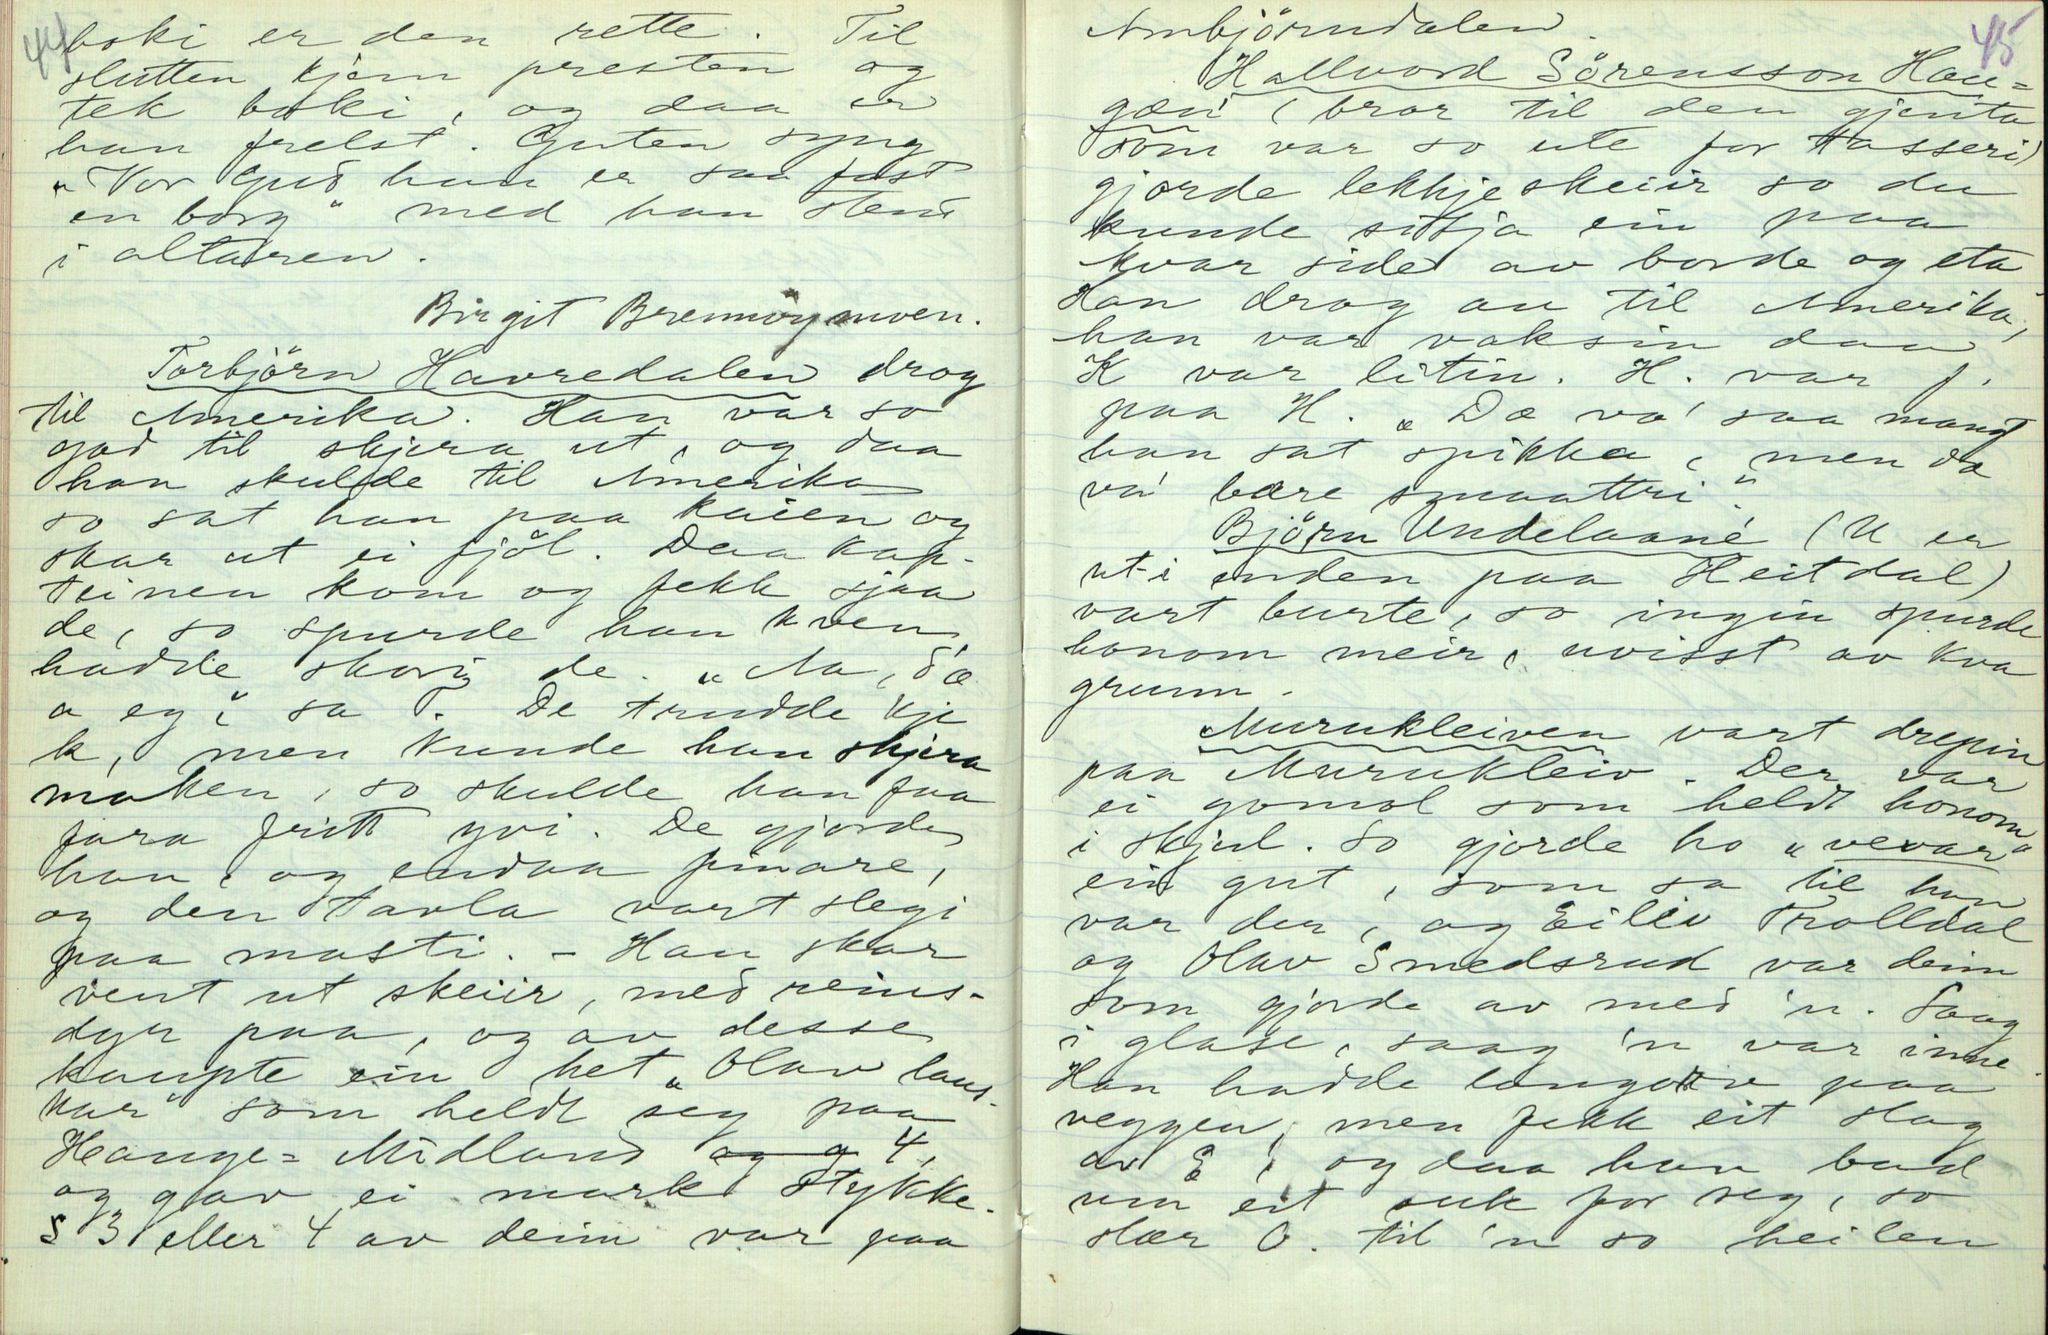 44
boki er den rette. Til
slutten kjem presten og
tek boki, og daa er
han frelst. Guten syng
"Vor Gud han er saa fast
en borg" med han stend
i altaren.
Birgit Brennmoen.
Torbjörn Havredalen drog
til Amerika. Han var so
god til skjera ut, og daa
han skulde til Amerika
so sat han paa kaien og
skar ut ei fjöl. Daa kap-
teinen kom og fekk sjaa
de, so spurde han kven
hadde skori de. "Aa, dæ
a eg", sa T. De trudde kje
k, men kunde han skjera
maken, so skulde han faa
fara fritt yvi. De gjorde
han, og endaa finare,
og den tavla vart slegi
paa masti. - Han skar
vent ut skeiir, med reins-
dyr paa, og av desse
kaupte ein het "Olav laus-
kar" som heldt seg paa
Hauge= Midland og g 4,
og gav ei mark stykke.
S 3 eller 4 av deim var paa
45
Ambjörndalen.
Hallvord Sörensson Hau=
gæn' (bror til den gjenta
som var so ute for tasseri)
gjorde lekkjeskeiir so du
kunde sitja ein paa
kvar side av borde og eta
Han drog au til Amerika,
han var vaksin daa
K var litin. H. var f.
paa H. "Dæ va' saa mangt
han sat spikka, men dæ
va' bære smaattri"
Björn Undelaané (U er
ut-i enden paa Heitdal)
vart burte, so ingin spurde
honom meir, uvisst av kva
grunn.
Murukleiven vart drepin
paa Murukleiv. Der var
ei gomol som heldt honom
i skjul. So gjorde ho "vevar"
ein gut, som sa til han
var der, og Eiliv Trolldal
og Olav Smedsrud var deim
som gjorde av med 'n. Saag
i glase, saag 'n var inne.
Han hadde langkniv paa
veggen, men fekk eit slag
av E, og daa han bad
um eit suk for seg, so
slær O. til 'n so heilen